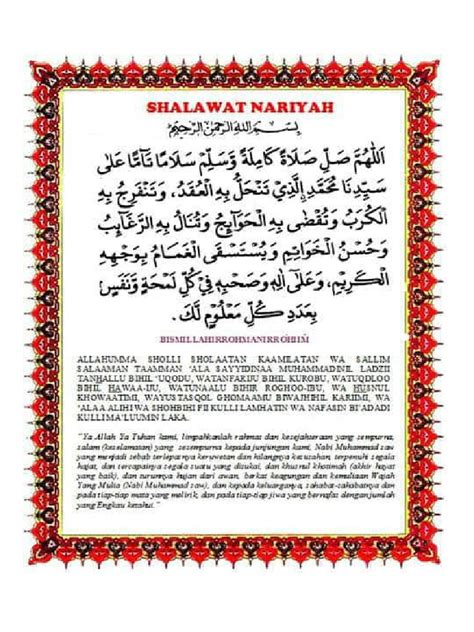 SHALAWAT NARIYAH
بِسْــمِ اللهِ الرَّحْمٰنِ الرَّحِيْمِ
اَللّٰهُمَّ صَلِّ صَلَاةً كَامِلَةً وَّسَلِّمْ سَلَامًا تَآمًّا عَلٰى
سَيِّدِنَا مُحَمَّدِ ࣙالَّذِيْ تَنْحَلُّ بِهِ الْعُقَدُ، وَتَنْفَرِجُ بِهِ
الْكُرَبُ وَتُقْضٰى بِهِ الْحَوَآئِجُ وَتُنَالُ بِهِ الرَّغَآئِبُ
وَحُسْنُ الْخَوَاتِمِ وَيُسْتَسْقَى الْغَمَامُ بِوَجْهِهِ
الْكَرِيْمِ، وَعَلٰى اٰلِهِ وَصَحْبِهِ فِيْ كُلِّ لَمْحَةٍ وَّنَفَسٍ
بِعَدَدِ كُلِّ مَعْلُوْمٍ لَّكَ.
BISMILLAHIRROHMANIRROHIIM
ALLAHUMMA SHOLLI SHOLAATAN KAAMILATAN WA SALLIM
SALAAMAN TAAMMAN 'ALA SAYYIDINAA MUHAMMADINIL LADZII
TANHALLU BIHIL 'UQODU, WATANFARIJU BIHIL KUROBU, WATUQDLOO
BIHIL HAWAA-IJU, WATUNAALU BIHIR ROGHOO-IBU, WA HUSNUL
KHOWAATIMI, WAYUSTASQOL GHOMAAMU BIWAJHIHIL KARIIMI, WA
'ALAA ALIHI WA SHOHBIHI FII KULLI LAMHATIN WA NAFASIN BI'ADADI
KULLI MA'LUUMIN LAKA.
"Ya Allah Ya Tuhan kami, limpahkanlah rahmat dan kesejahteraan yang sempurna,
salam (keselamatan) yang sesempurna kepada junjungan kami, Nabi Muhammad saw
yang menjadi sebab terlepasnya keruwetan dan hilangnya kesusahan, terpenuhi segala
hajat, dan tercapainya segala suatu yang disukai, dan khusnul khotimah (akhir hayat
yang baik), dan turunnya hujan dari awan, berkat keagungan dan kemuliaan Wajah
Yang Mulia (Nabi Muhammad saw), dan kepada keluarganya, sahabat-sahabatnya dan
pada tiap-tiap mata yang melirik, dan pada tiap-tiap jiwa yang bernafas dengan jumlah
yang Engkau ketahui."